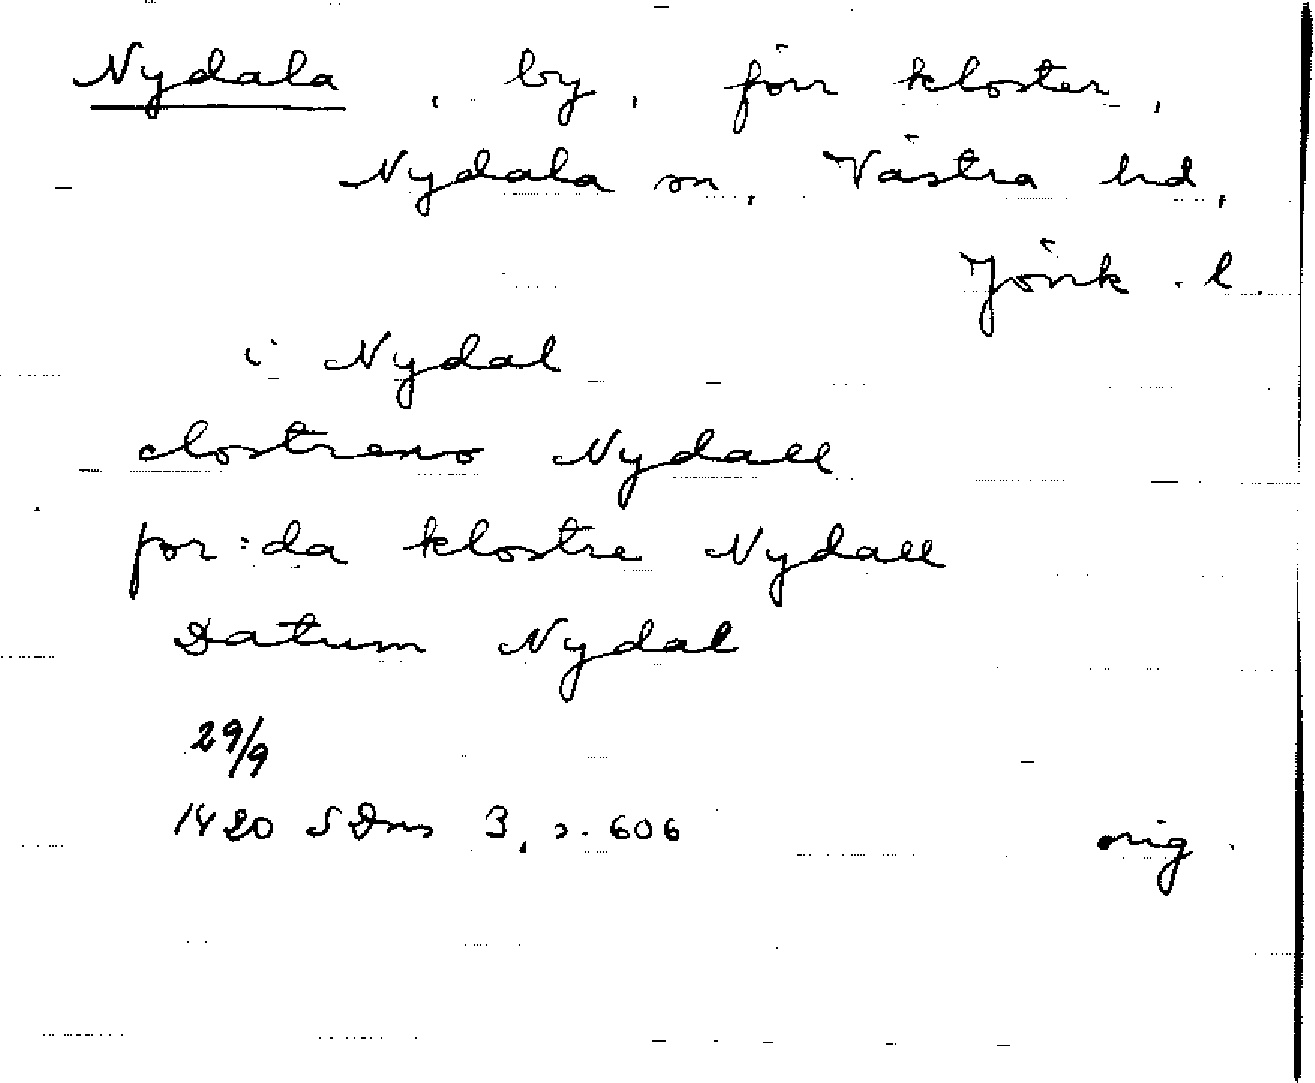 Nydala, by, förr kloster,
Nydala sn, Västra hd,
Jönk. l.
i Nydal
clostreno Nydall
for:da klostre Nydall
Datum Nydal
29/9
1420 SDns 3, s. 606 orig.